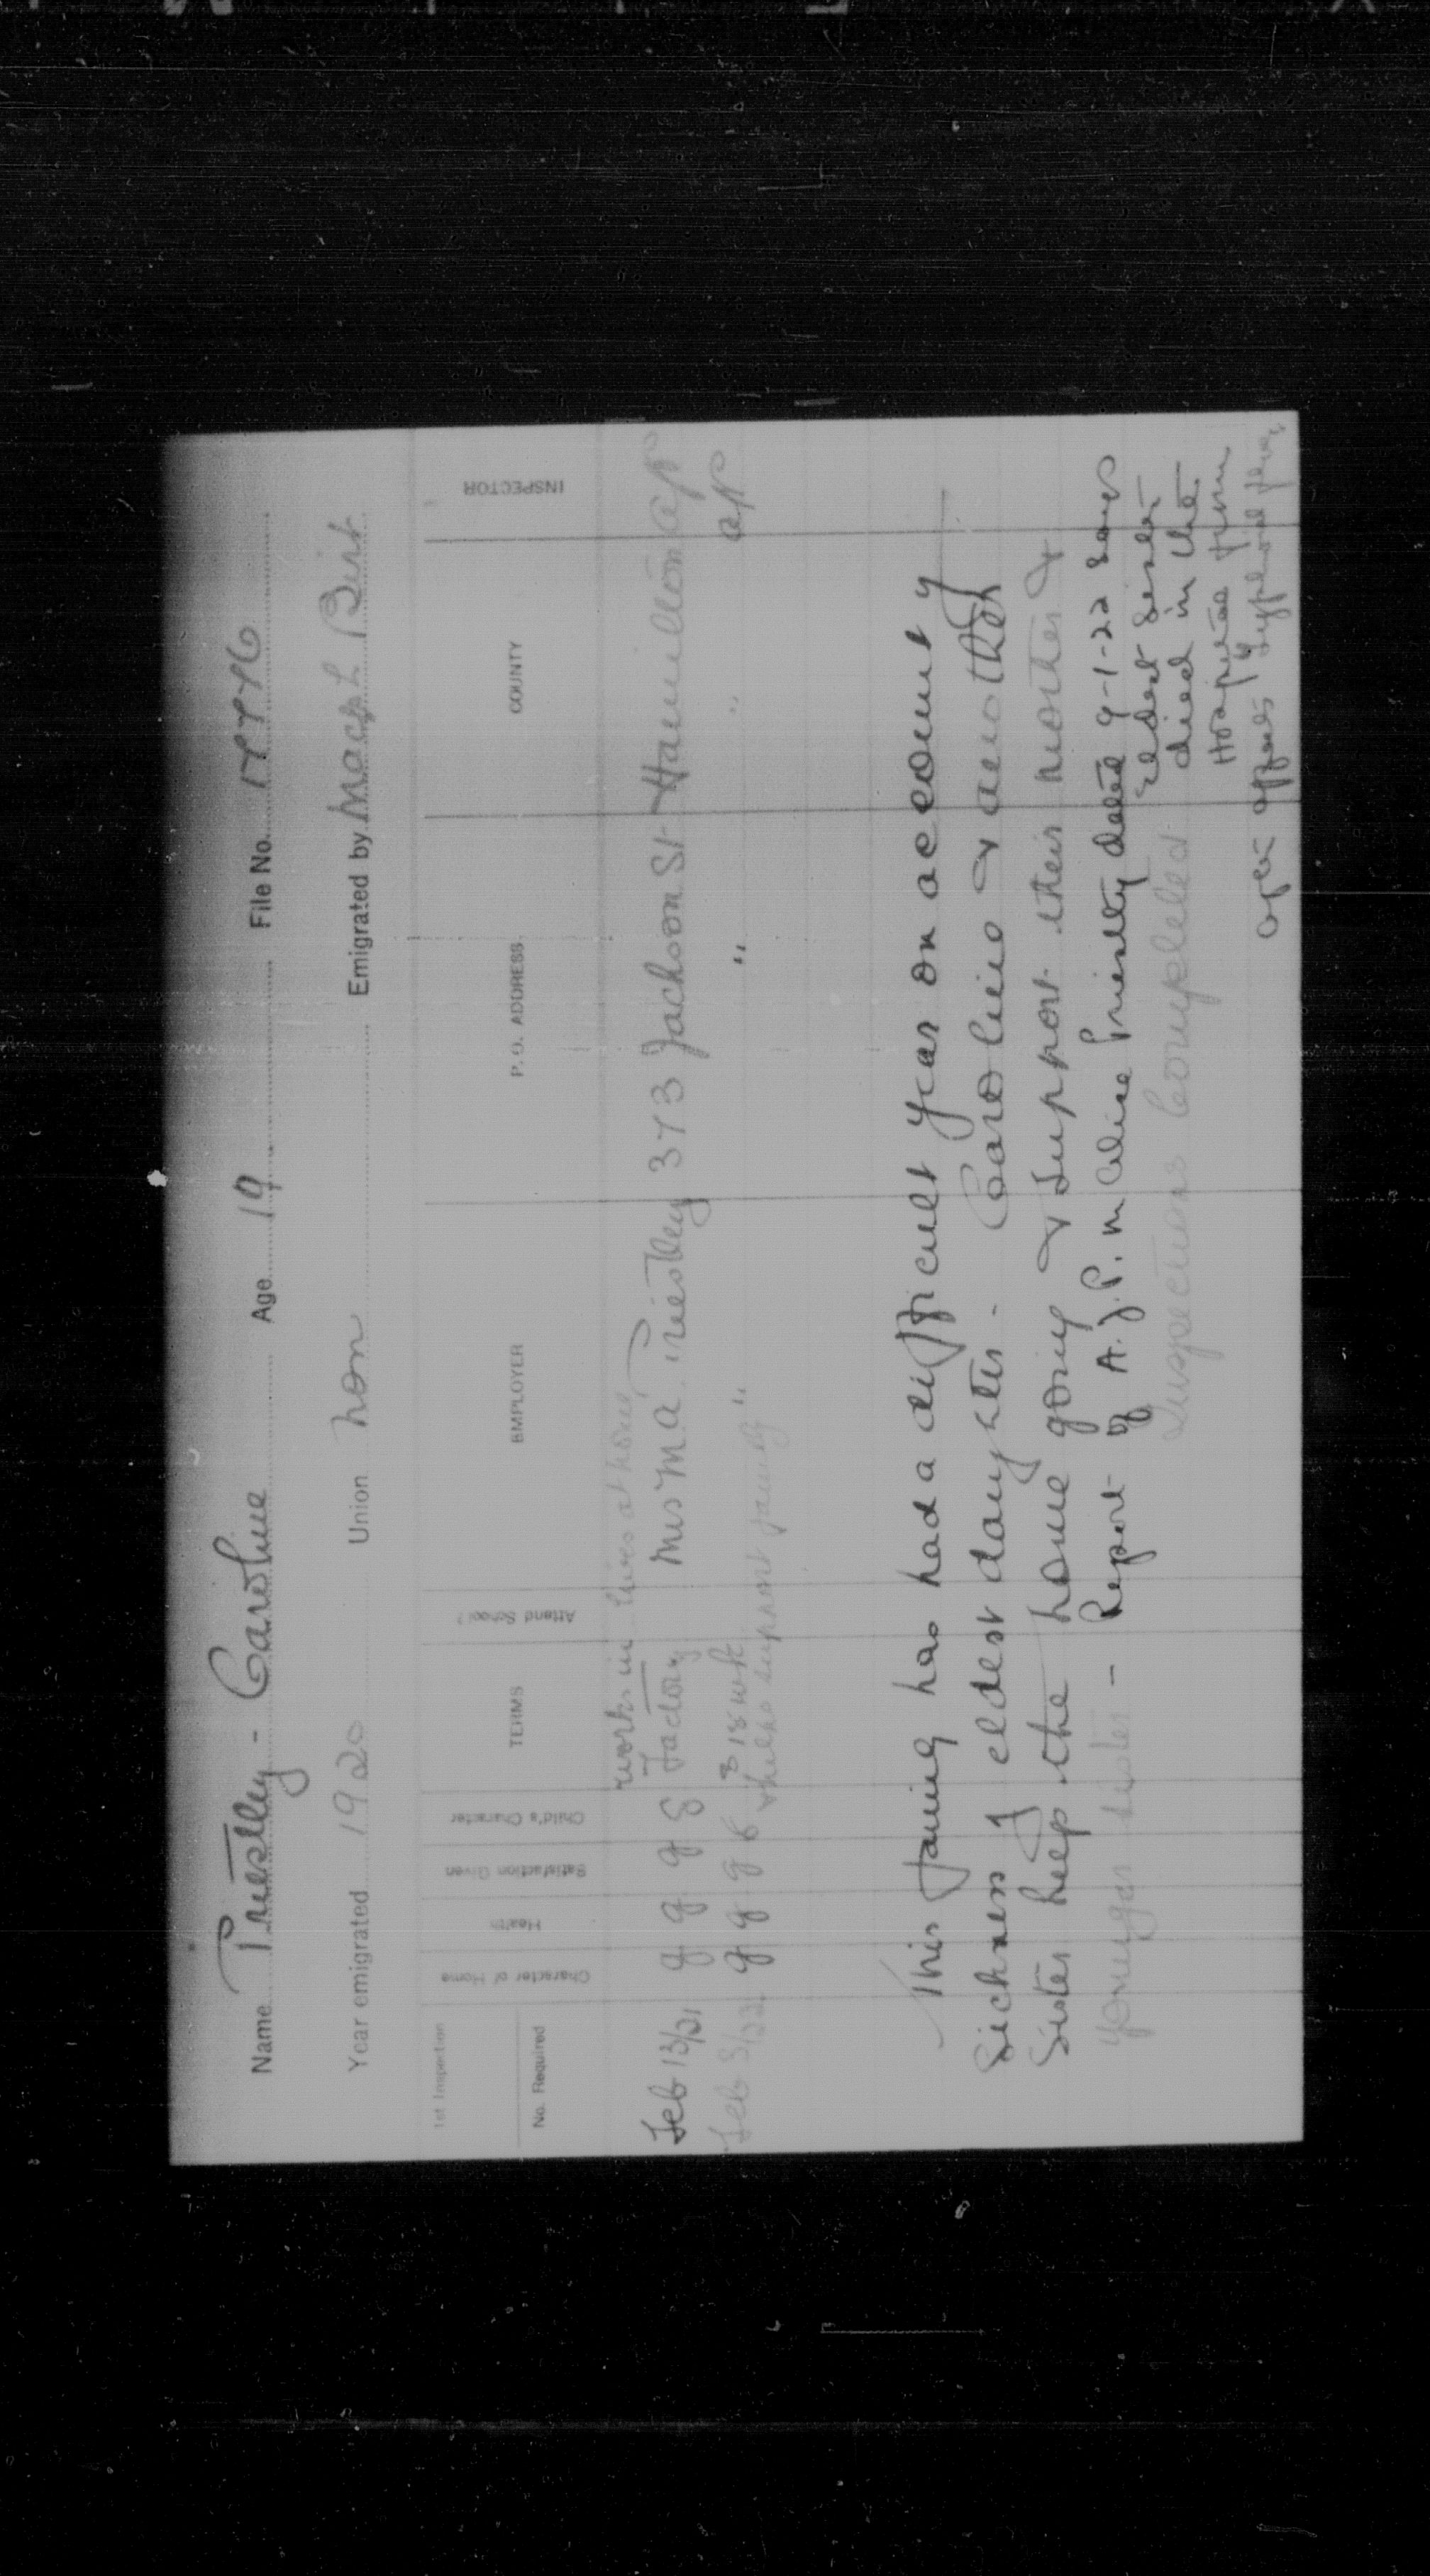 Name Priestley - Caroline Age 19 File No. 17776
Year emigrated 1920 Union non Emigrated by Macph Birt
1st Inspection
No. Required
Character of Home
Health
Satisfaction Given
Child's Character
TERMS
Attend School?
EMPLOYER
P. O. ADDRESS
COUNTY
INSPECTOR
works in lives at home
Feb 13/21 g g g g Factory Mrs M A Priestley 373 Jackson St Hamilton
Feb 3/22 g g g g $ 18 week " " "
helps support family
This family has had a difficult year on account of
Sickness of eldest daughter - Caroline & another
Sister keep the home going & Support their mother &
younger sister - Report of A. J. P. m Alice Priestly dated 9-1-22 says
eldest sister
Inspections Completed died in the
Hospital from
after effects of typhoid fever